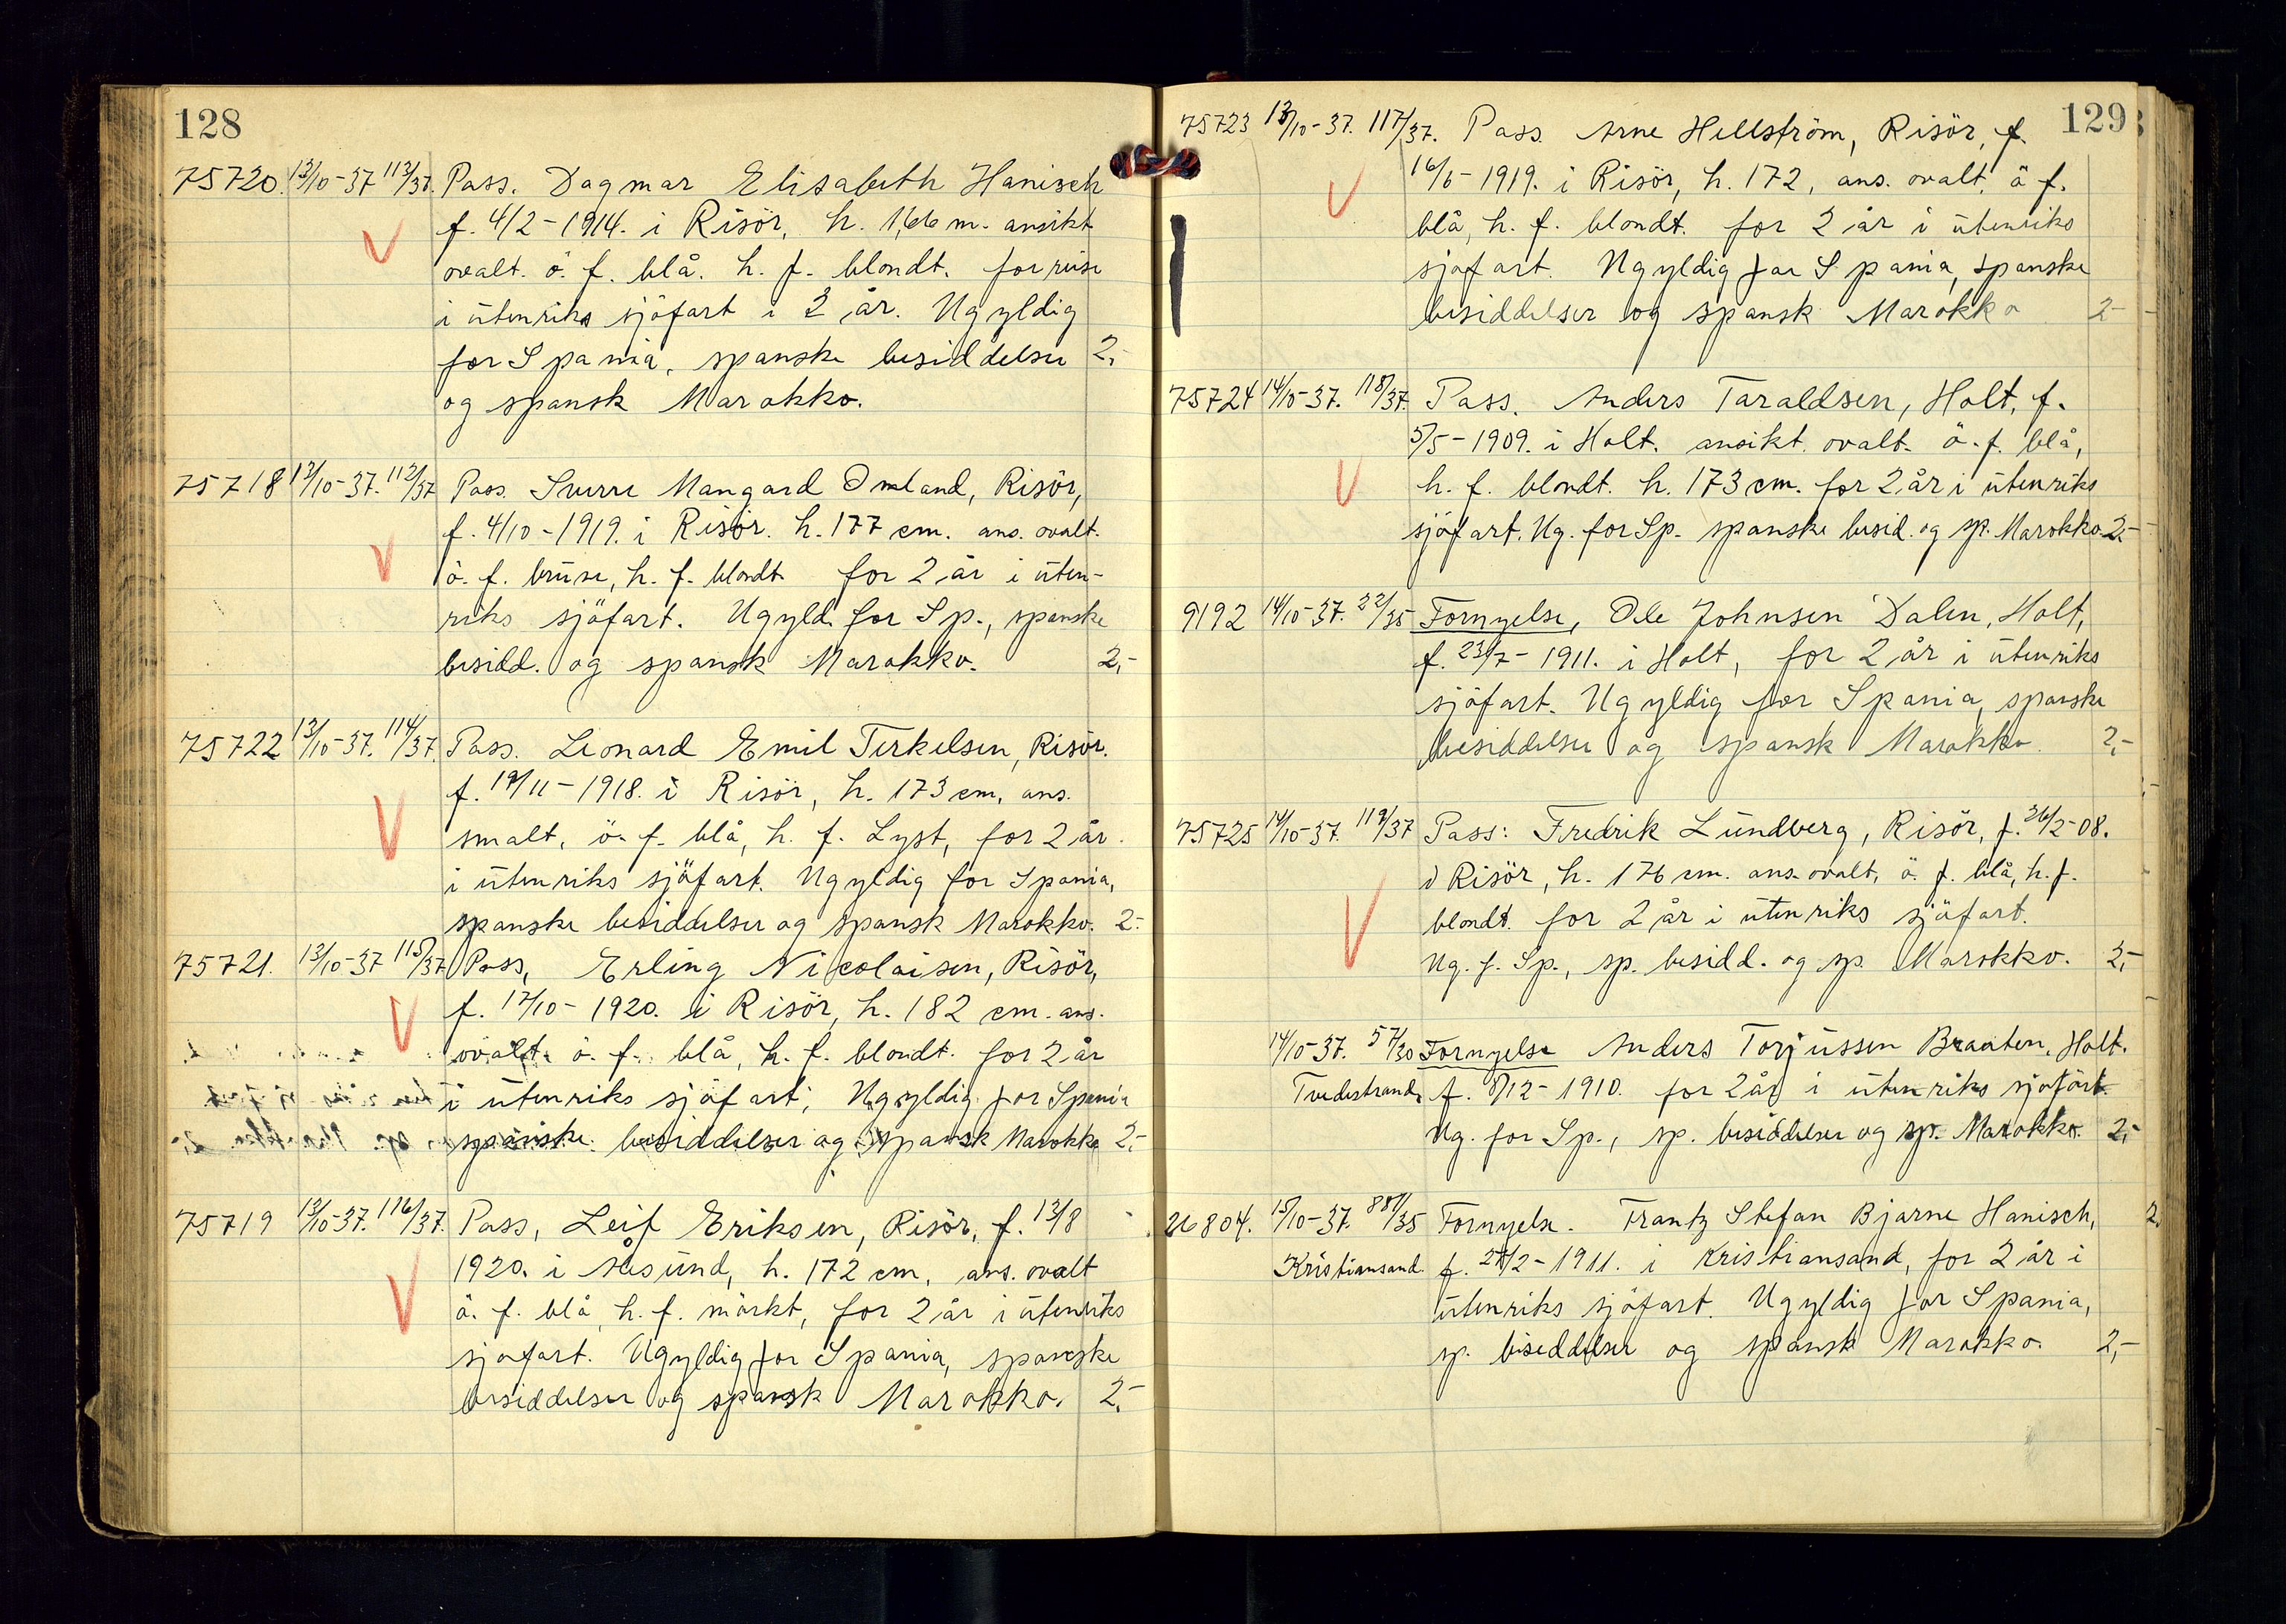 128
75720. 13/10-37 113/37. Pass. Dagmar Elisabeth Hanisch
f. 4/2-1914. i Risör, h. 1,66 m. ansikt
ovalt. ö. f. blå. h. f. blondt. for reise
i ütenriks sjöfart i 2 år. Ugyldig
for Spania, spanske besiddelser 2,-
og spansk Marokko.
75718 13/10-37. 112/37 Pass. Sverre Mangard Omland, Risör,
f. 4/10-1919. i Risör. h. 177 cm. ans. ovalt.
ö. f. brüne, h. f. blondt. for 2 år i üten-
riks sjöfart. Ugyld. for Sp., spanske
besidd. og spansk Marokko. 2,-
75722 13/10-37. 114/37. Pass. Leonard Emil Terkelsen, Risör.
f. 19/11-1918. i Risör, h. 173 cm, ans.
smalt, ö. f. blå, h. f. Lyst, for 2 år.
i ütenriks sjöfart. Ugyldig for Spania,
spanske besiddelser og spansk Marokko. 2,-
75721. 13/10-37 115/37 Pass, Erling Nicolaisen, Risör,
f. 17/10-1920. i Risör, h. 182 cm. ans.
ovalt. ö. f. blå, h. f. blondt. for 2 år
i ütenriks sjöfart, Ugyldig for Spania
spanske besiddelser og spansk Marokko 2,-
75719 13/10-37. 116/37. Pass, Leif Eriksen, Risör, f. 13/8
1920. i Ålesünd, h. 172 cm, ans. ovalt
ö. f. blå, h. f. mörkt, for 2 år i ütenriks
sjöfart. Ugyldig for Spania, spanske
besiddelser og spansk Marokko. 2,-
129
75723 13/10-37. 117/37. Pass. Arne Hellström, Risör, f.
16/5-1919. i Risör, h. 172, ans. ovalt, ö f.
blå, h. f. blondt. for 2 år i ütenriks
sjöfart. Ugyldig for Spania, spanske
besiddelser og spansk Marokko 2-
75724 14/10-37. 118/37. Pass. Anders Taraldsen, Holt, f.
5/5-1909. i Holt. ansikt ovalt. ö. f. blå,
h. f. blondt. h. 173 cm. for 2 år i ütenriks
sjöfart. Ug. for Sp. spanske besid. og sp. Marokko 2,-
9192 14/10-37. 22/35 Fornyelse, Ole Johnsen Dalen, Holt,
f. 23/7-1911. i Holt, for 2 år i ütenriks
sjöfart. Ugyldig for Spania, spanske
besiddelser og spansk Marokko. 2,-
75725 14/10-37. 119/37 Pass: Fredrik Lündberg, Risör, f. 26/2-08.
i Risör, h. 176 cm. ans. ovalt, ö. f. blå, h. f.
blondt. for 2 år i ütenriks sjöfart.
Ug. f. Sp., sp. besidd. og sp. Marokko. 2,-
14/10-37. 57/30 Fornyelse Anders Torjüssen Braaten, Holt.
Tvedestrand. f. 8/12-1910. for 2 år i ütenriks sjöfart.
Ug. for Sp., sp. besiddelser og sp. Marokko. 2,-
26804. 15/10-37. 88/35 Fornyelse. Frantz Stefan Bjarne Hanisch,
Kristiansand. f. 27/2-1911. i Kristiansand, for 2 år i
ütenriks sjöfart. Ugyldig for Spania,
sp. besiddelser og spansk Marokko. 2,-